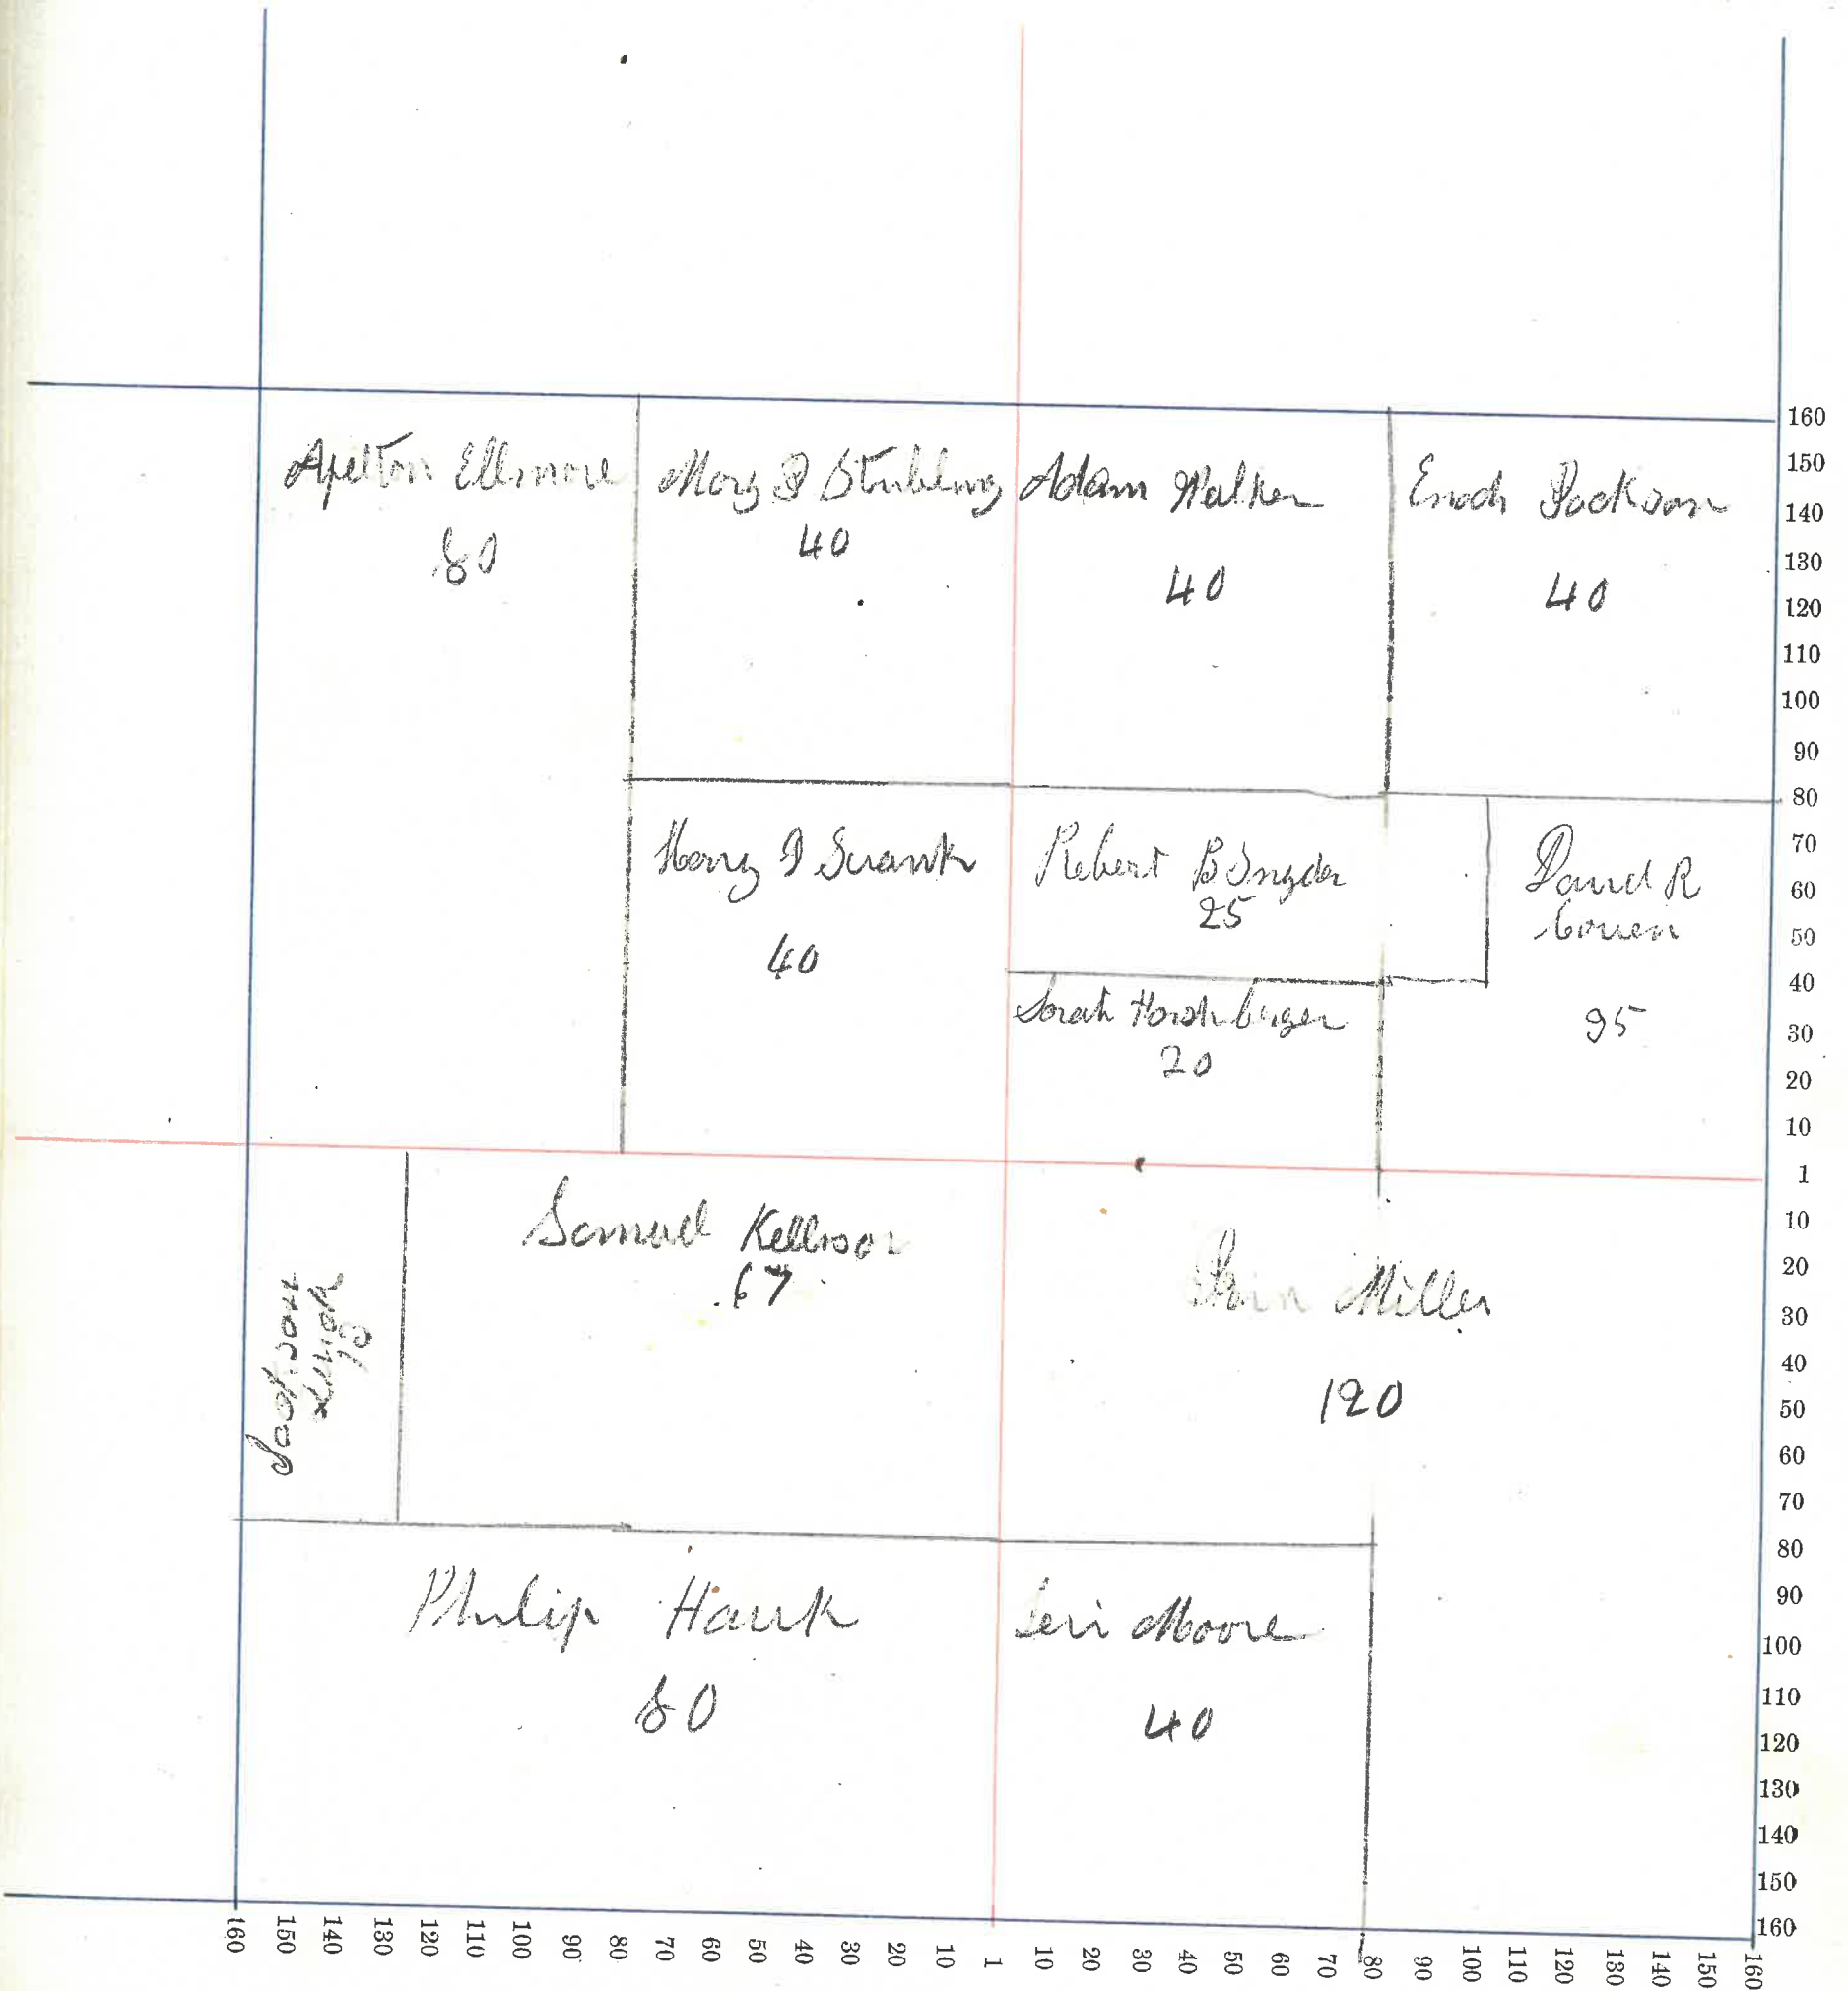 Apelton Ellmore
80
Mary B Stubling
40
Adam Walker
40
Enoch Jackson
40
Mary I Swank
40
Robert B Snyder
25
David R
Cowen
95
Sarah Harshbarger
20
Samuel Kellison
67
Miller
120
Jackson
13
Philip Hauk
80
Levi Moore
40
160
150
140
130
120
110
100
90
80
70
60
50
40
30
20
10
1
10
20
30
40
50
60
70
80
90
100
110
120
130
140
150
160
160 150 140 130 120 110 100 90 80 70 60 50 40 30 20 10 1 10 20 30 40 50 60 70 80 90 100 110 120 130 140 150 160